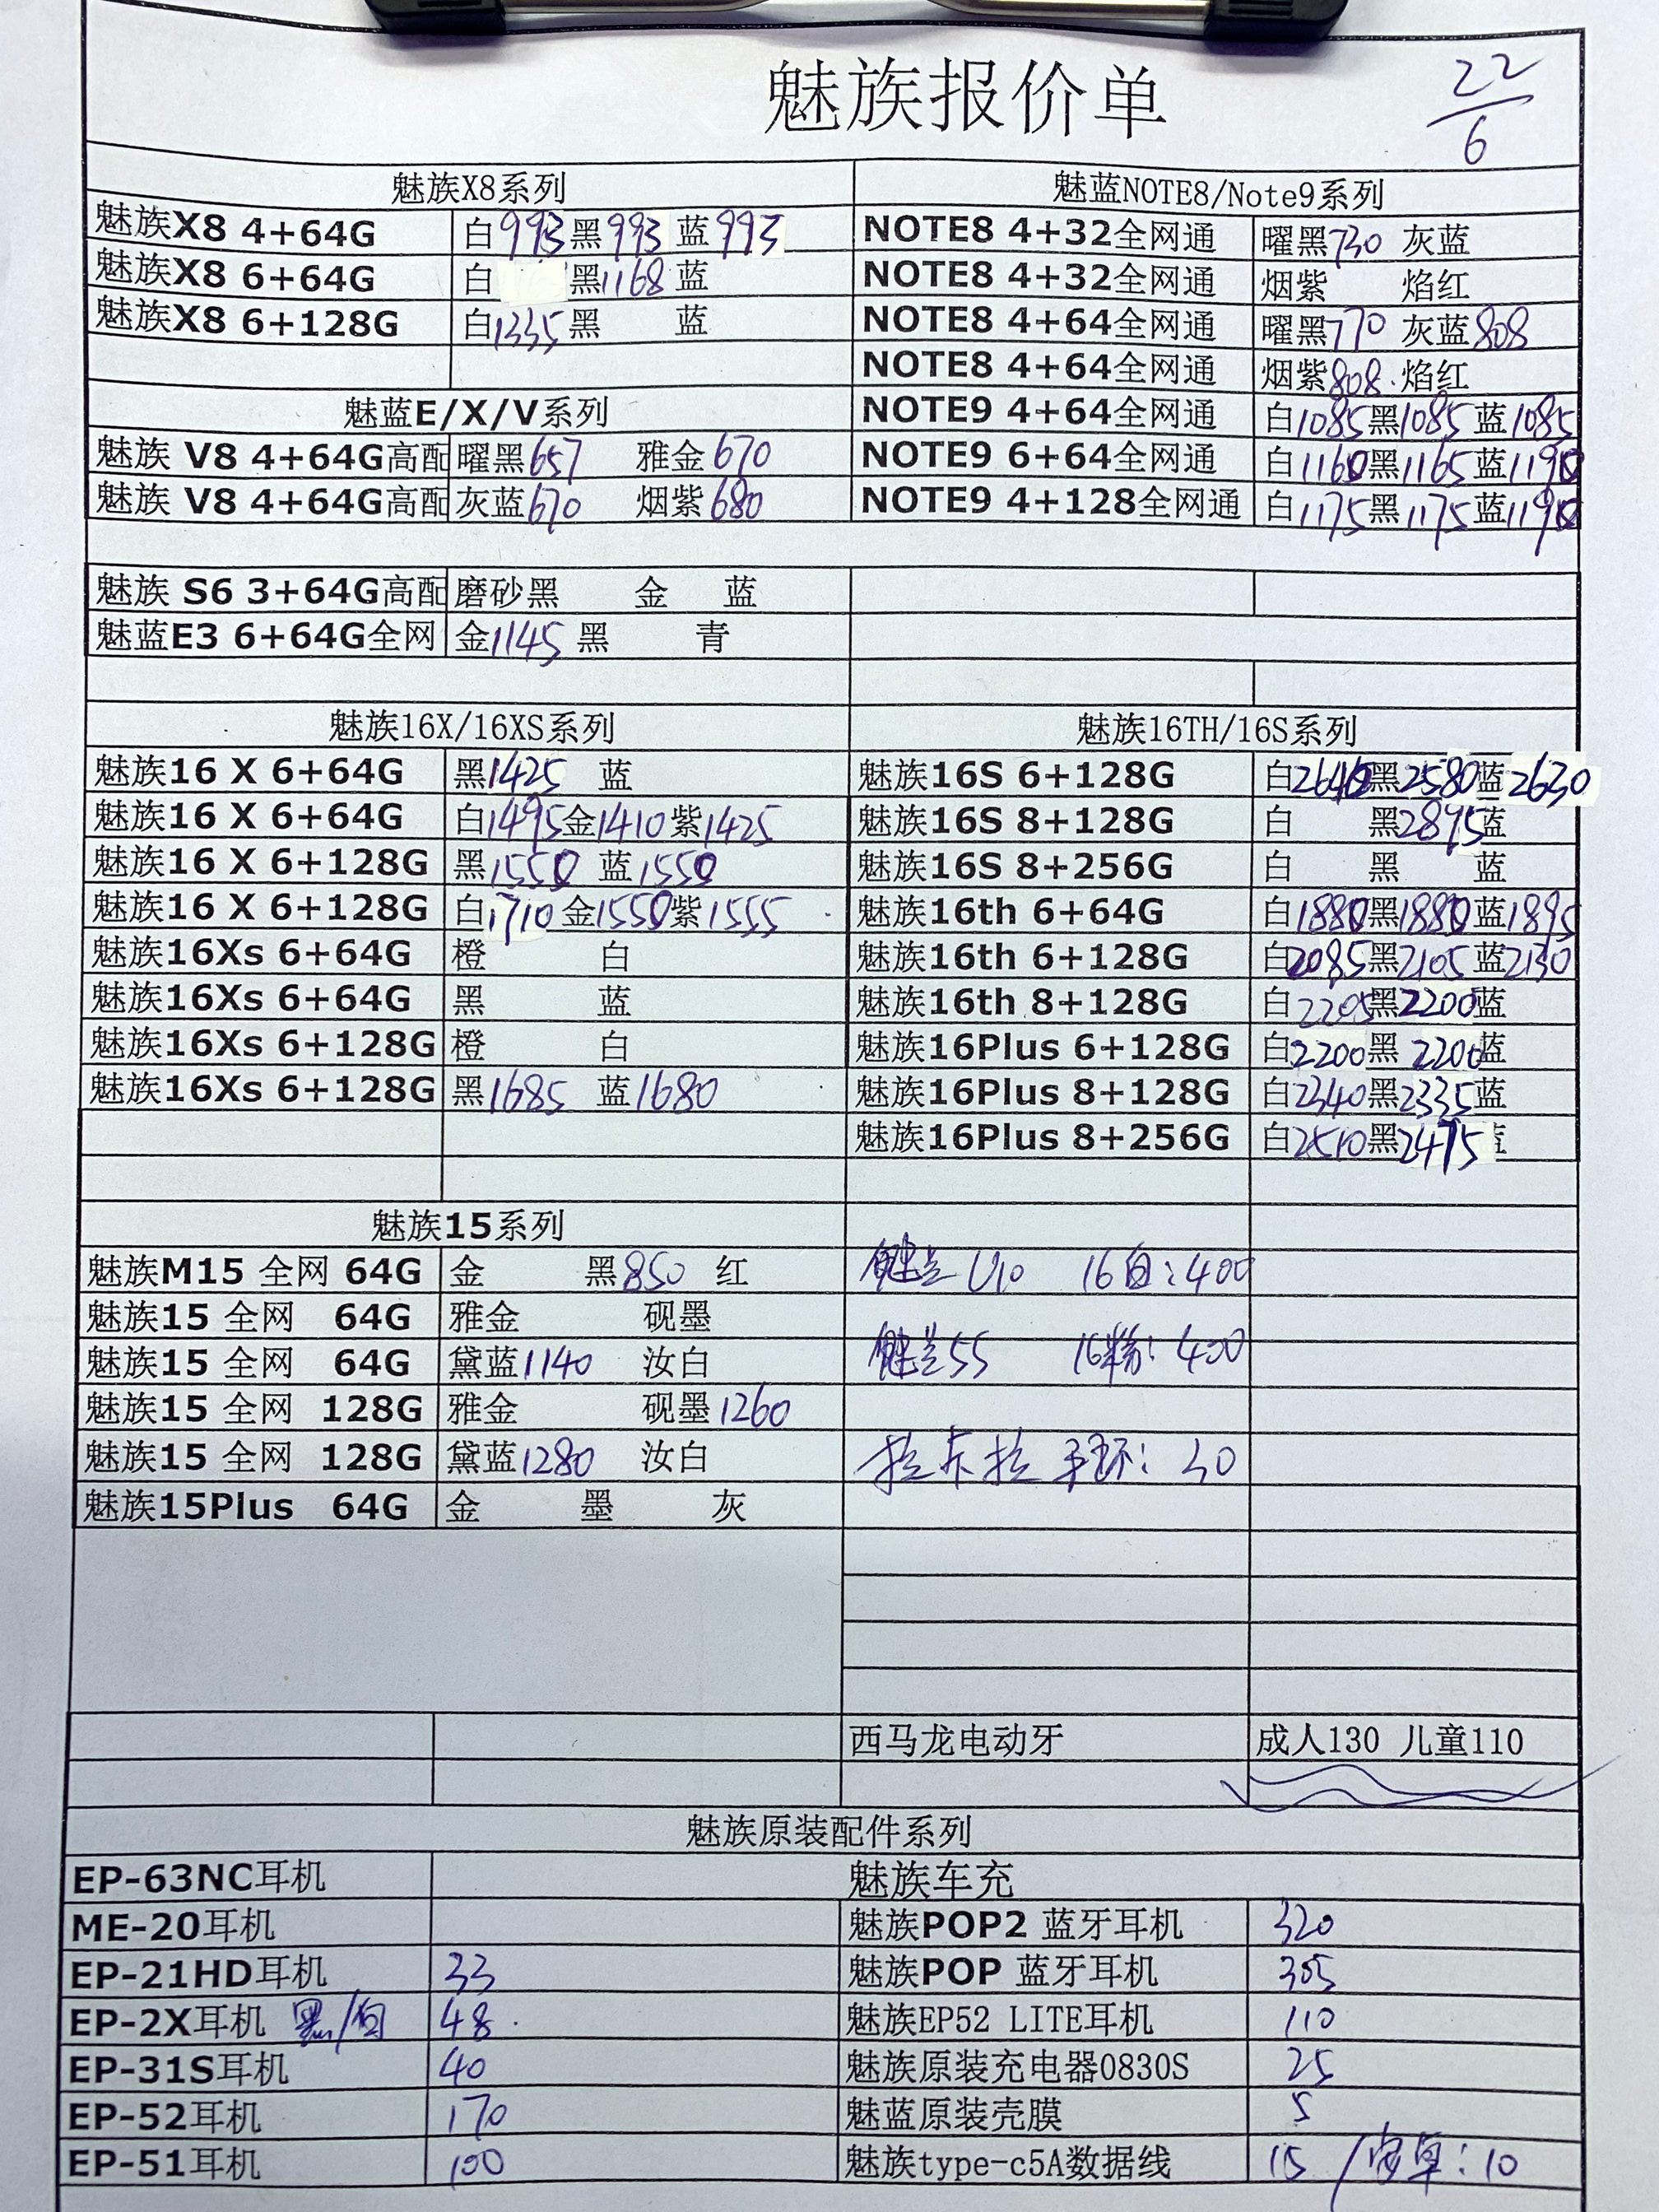 魅族报价单
22/6
魅族X8系列
魅族X8 4+64G 白993 黑993 蓝993
魅族X8 6+64G 白 黑1168 蓝
魅族X8 6+128G 白1335 黑 蓝
魅蓝E/X/V系列
魅族 V8 4+64G高配 曜黑657 雅金670
魅族 V8 4+64G高配 灰蓝670 烟紫680
魅族 S6 3+64G高配 磨砂黑 金 蓝
魅蓝E3 6+64G全网 金1145 黑 青
魅蓝NOTE8/Note9系列
NOTE8 4+32全网通 曜黑730 灰蓝
NOTE8 4+32全网通 烟紫 焰红
NOTE8 4+64全网通 曜黑770 灰蓝808
NOTE8 4+64全网通 烟紫808 焰红
NOTE9 4+64全网通 白1085 黑1085 蓝1085
NOTE9 6+64全网通 白1160 黑1165 蓝1190
NOTE9 4+128全网通 白1175 黑1175 蓝1190
魅族16X/16XS系列
魅族16 X 6+64G 黑1425 蓝
魅族16 X 6+64G 白1495 金1410 紫1425
魅族16 X 6+128G 黑1550 蓝1550
魅族16 X 6+128G 白1710 金1550 紫1555
魅族16Xs 6+64G 橙 白
魅族16Xs 6+64G 黑 蓝
魅族16Xs 6+128G 橙 白
魅族16Xs 6+128G 黑1685 蓝1680
魅族16TH/16S系列
魅族16S 6+128G 白2640 黑2580 蓝2630
魅族16S 8+128G 白 黑2895 蓝
魅族16S 8+256G 白 黑 蓝
魅族16th 6+64G 白1880 黑1880 蓝1895
魅族16th 6+128G 白2085 黑2105 蓝2130
魅族16th 8+128G 白2205 黑2200 蓝
魅族16Plus 6+128G 白2200 黑2200 蓝
魅族16Plus 8+128G 白2340 黑2335 蓝
魅族16Plus 8+256G 白2510 黑2475
魅族15系列
魅族M15 全网 64G 金 黑850 红
魅族15 全网 64G 雅金 砚墨
魅族15 全网 64G 黛蓝1140 汝白
魅族15 全网 128G 雅金 砚墨1260
魅族15 全网 128G 黛蓝1280 汝白
魅族15Plus 64G 金 墨 灰
魅兰U10 16白:400
魅兰5S 16粉:400
拉卡拉手环:30
西马龙电动牙 成人130 儿童110
魅族原装配件系列
EP-63NC耳机 魅族车充
ME-20耳机 魅族POP2 蓝牙耳机 320
EP-21HD耳机 33 魅族POP 蓝牙耳机 305
EP-2X耳机 黑/白 48 魅族EP52 LITE耳机 110
EP-31S耳机 40 魅族原装充电器0830S 25
EP-52耳机 170 魅蓝原装壳膜 5
EP-51耳机 100 魅族type-c5A数据线 15 /安卓:10